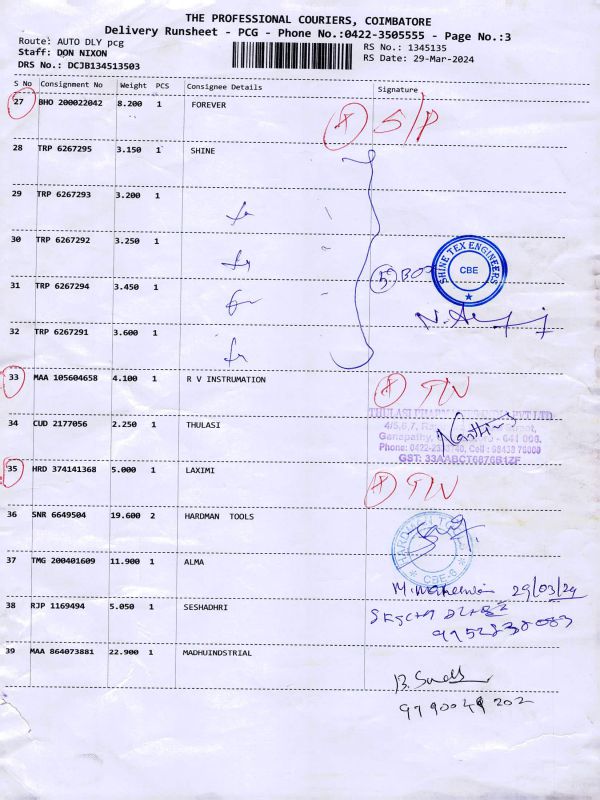 THE PROFESSIONAL COURIERS, COIMBATORE
Delivery Runsheet - PCG - Phone No.:0422-3505555 - Page No.:3
Route: AUTO DLY pcg
Staff: DON NIXON
DRS No.: DCJB134513503
RS No.: 1345135
RS Date: 29-Mar-2024
S No Consignment No Weight PCS Consignee Details Signature
27 BHO 200022042 8.200 1 FOREVER S/P
28 TRP 6267295 3.150 1 SHINE
29 TRP 6267293 3.200 1
30 TRP 6267292 3.250 1
SHINE TEX ENGINEERS
CBE
31 TRP 6267294 3.450 1
32 TRP 6267291 3.600 1
33 MAA 105604658 4.100 1 R V INSTRUMATION
34 CUD 2177056 2.250 1 THULASI
4/5,6,7,
Ganapathy,
641 006.
GST: 33AABCT6876B1ZF
35 HRD 374141368 5.000 1 LAXIMI
36 SNR 6649504 19.600 2 HARDMAN TOOLS
CBE-6
37 TMG 200401609 11.900 1 ALMA
29/03/24
38 RJP 1169494 5.050 1 SESHADHRI
39 MAA 864073881 22.900 1 MADHUINDSTRIAL
9790049202